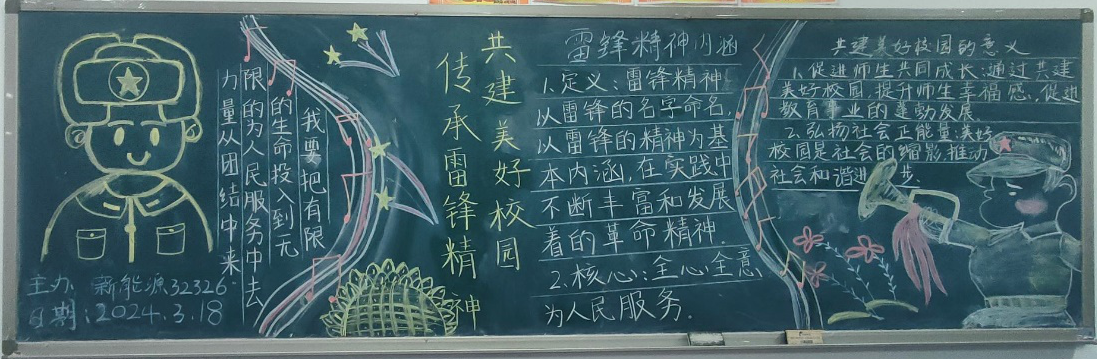 我要把有限
的生命投入到无
限的为人民服务中去
力量从团结中来
主办：新能源32326
日期：2024.3.18
共建美好校园
传承雷锋精神
雷锋精神内涵
1.定义：雷锋精神
以雷锋的名字命名.
以雷锋的精神为基
本内涵,在实践中
不断丰富和发展
着的革命精神.
2.核心:全心全意
为人民服务.
共建美好校园的意义
1.促进师生共同成长:通过共建
美好校园,提升师生幸福感,促进
教育事业的蓬勃发展
2.弘扬社会正能量:美好
校园是社会的缩影,推动
社会和谐进步.